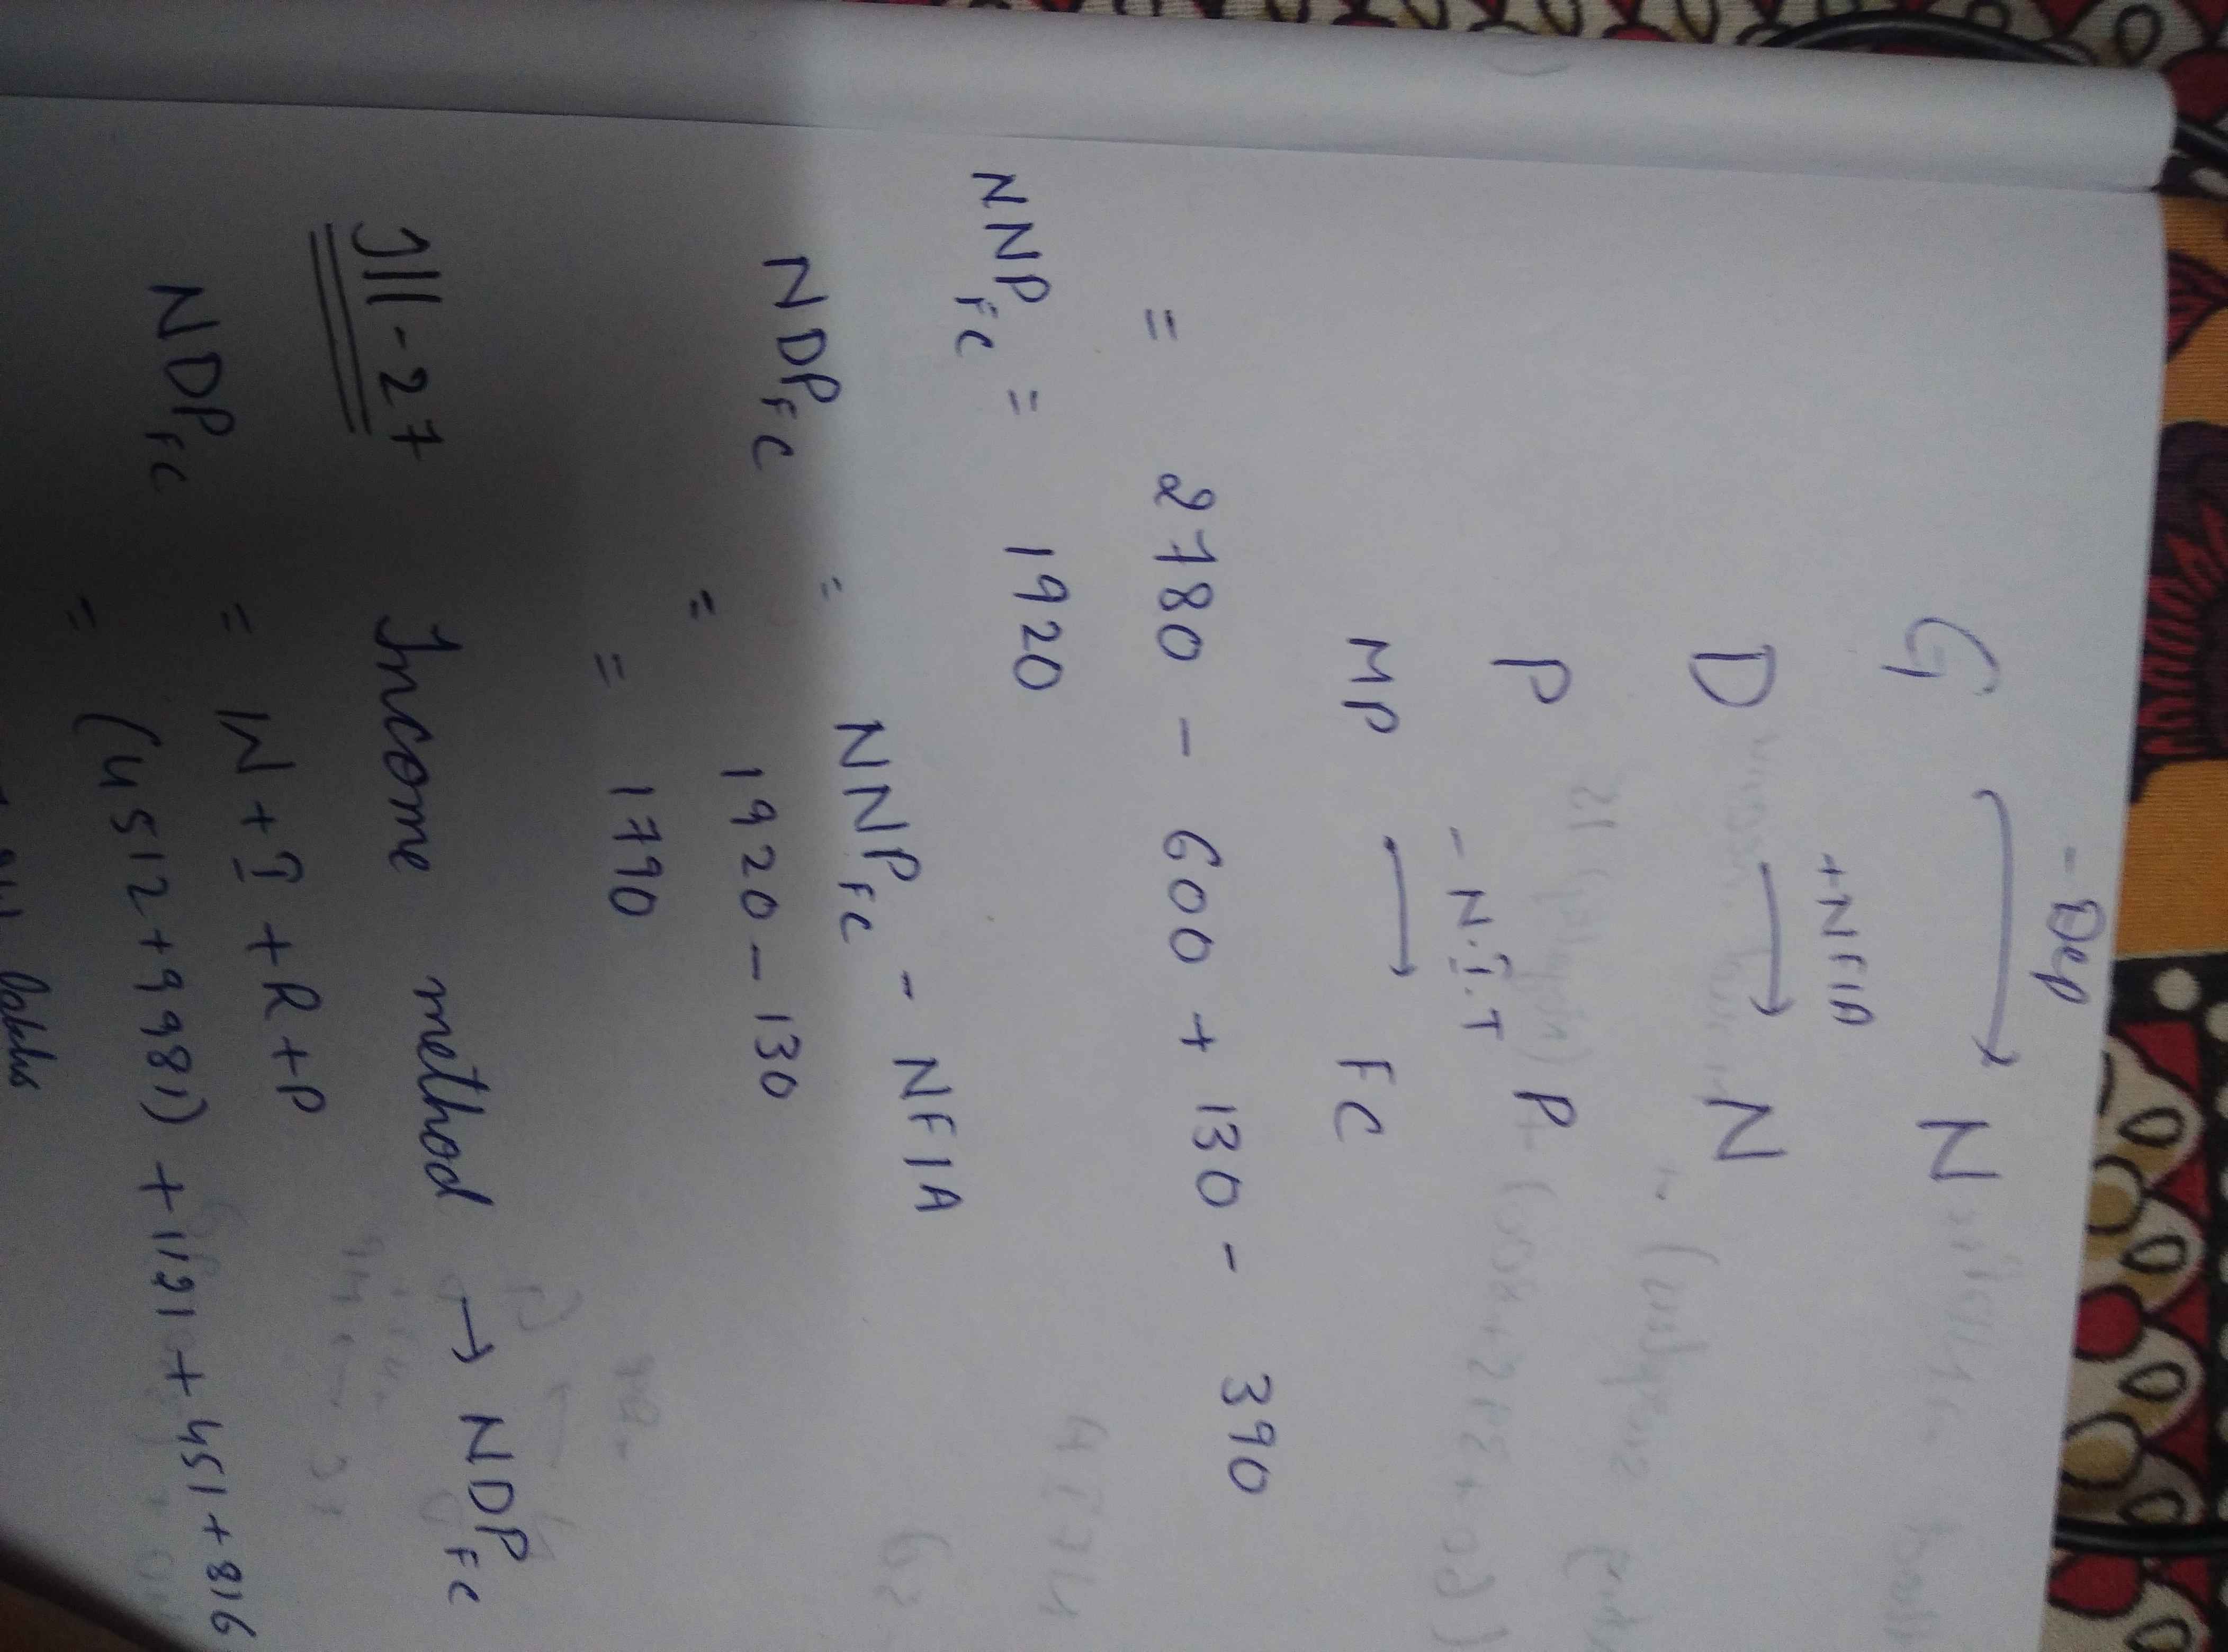 - Dep
G → N
+NFIA
D → N
P P
- N.I.T
MP → FC
= 2780 - 600 + 130 - 390
NNP FC = 1920
NDP FC = NNP FC - NFIA
= 1920 - 130
= 1790
Ill-27 Income method → NDP FC
NDP FC = W + I + R + P
= (4512 + 9981) + 1121 + 451 + 816